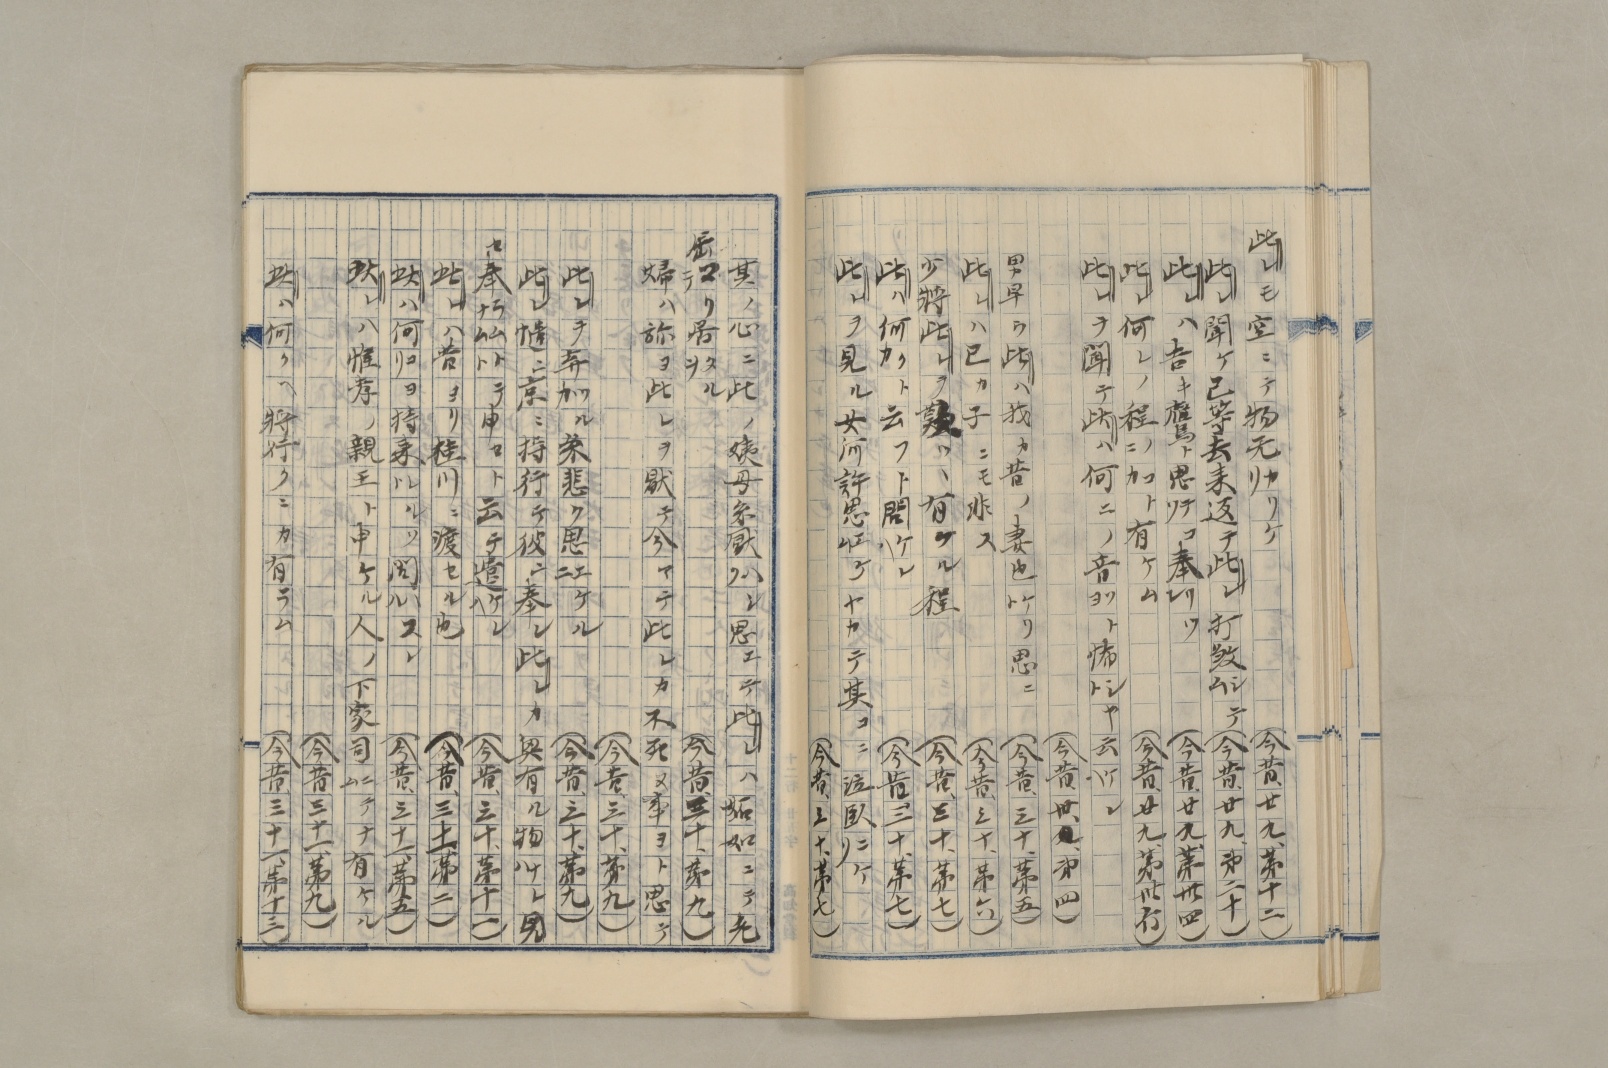 此レモ空ニテ物无カリケリ（今昔、廿九、第十二）
此レ聞ケ己等去来返テ此レ打殺シテム（今昔、廿九、第二十）
此レハ吉キ鷹ト思テコリ奉リツレ（今昔、廿九、第卅四）
此レ何レノ程ノ加ニコト有ケム（今昔、廿九、第卅
此レヲ聞テ此ハ何ニノ音ヨット怖シトヤ云ケレハ
（今昔、卅、第四）
男早ウ此ハ我カ昔ノ妻也ケリト思ニ（今昔、三十、第五）
此レハ己カ子ニモ非ス（今昔、三十、第六）
少将此レヲ
有ケル程（今昔、三十、第七）
此ハ何カクト云フト問ケレハ（今昔、三十、第七）
此レヲ見ル女何許思ケヤカテ其コニ泣臥ニケリ
（今昔、三十、第七）
其ノ心ニ此ノ姨母
思エテ此レハ姤如ニテ老
テリ居タル（今昔、三十、第九）
婦ハ弥ヨ此レヲ厭テ今マテ此レカ不死ヌ事ヨト思テ
（今昔、三十、第九）
此レヲ弃加ツル
悲ク思エケルニ（今昔、三十、第九）
此レ慥ニ京ニ持行テ彼ニ奉レ此レカ興有ル物ハケレ見
セ奉ラムトナムトテ申セト云テ遣ケレハ（今昔、三十、第十一）
此レハ昔ヨリ桂川ニ渡セル也（今昔、三十一、第二）
此ハ何リコヨ持来ルソルト問ハスレハ（今昔、三十一、第五）
此レハ惟孝ノ親王ト申ケル人ノ下家司ニテナム有ケル
（今昔、三十一、第九）
此ハ何クヘ将行クニカ有ラム（今昔、三十一、第十三）